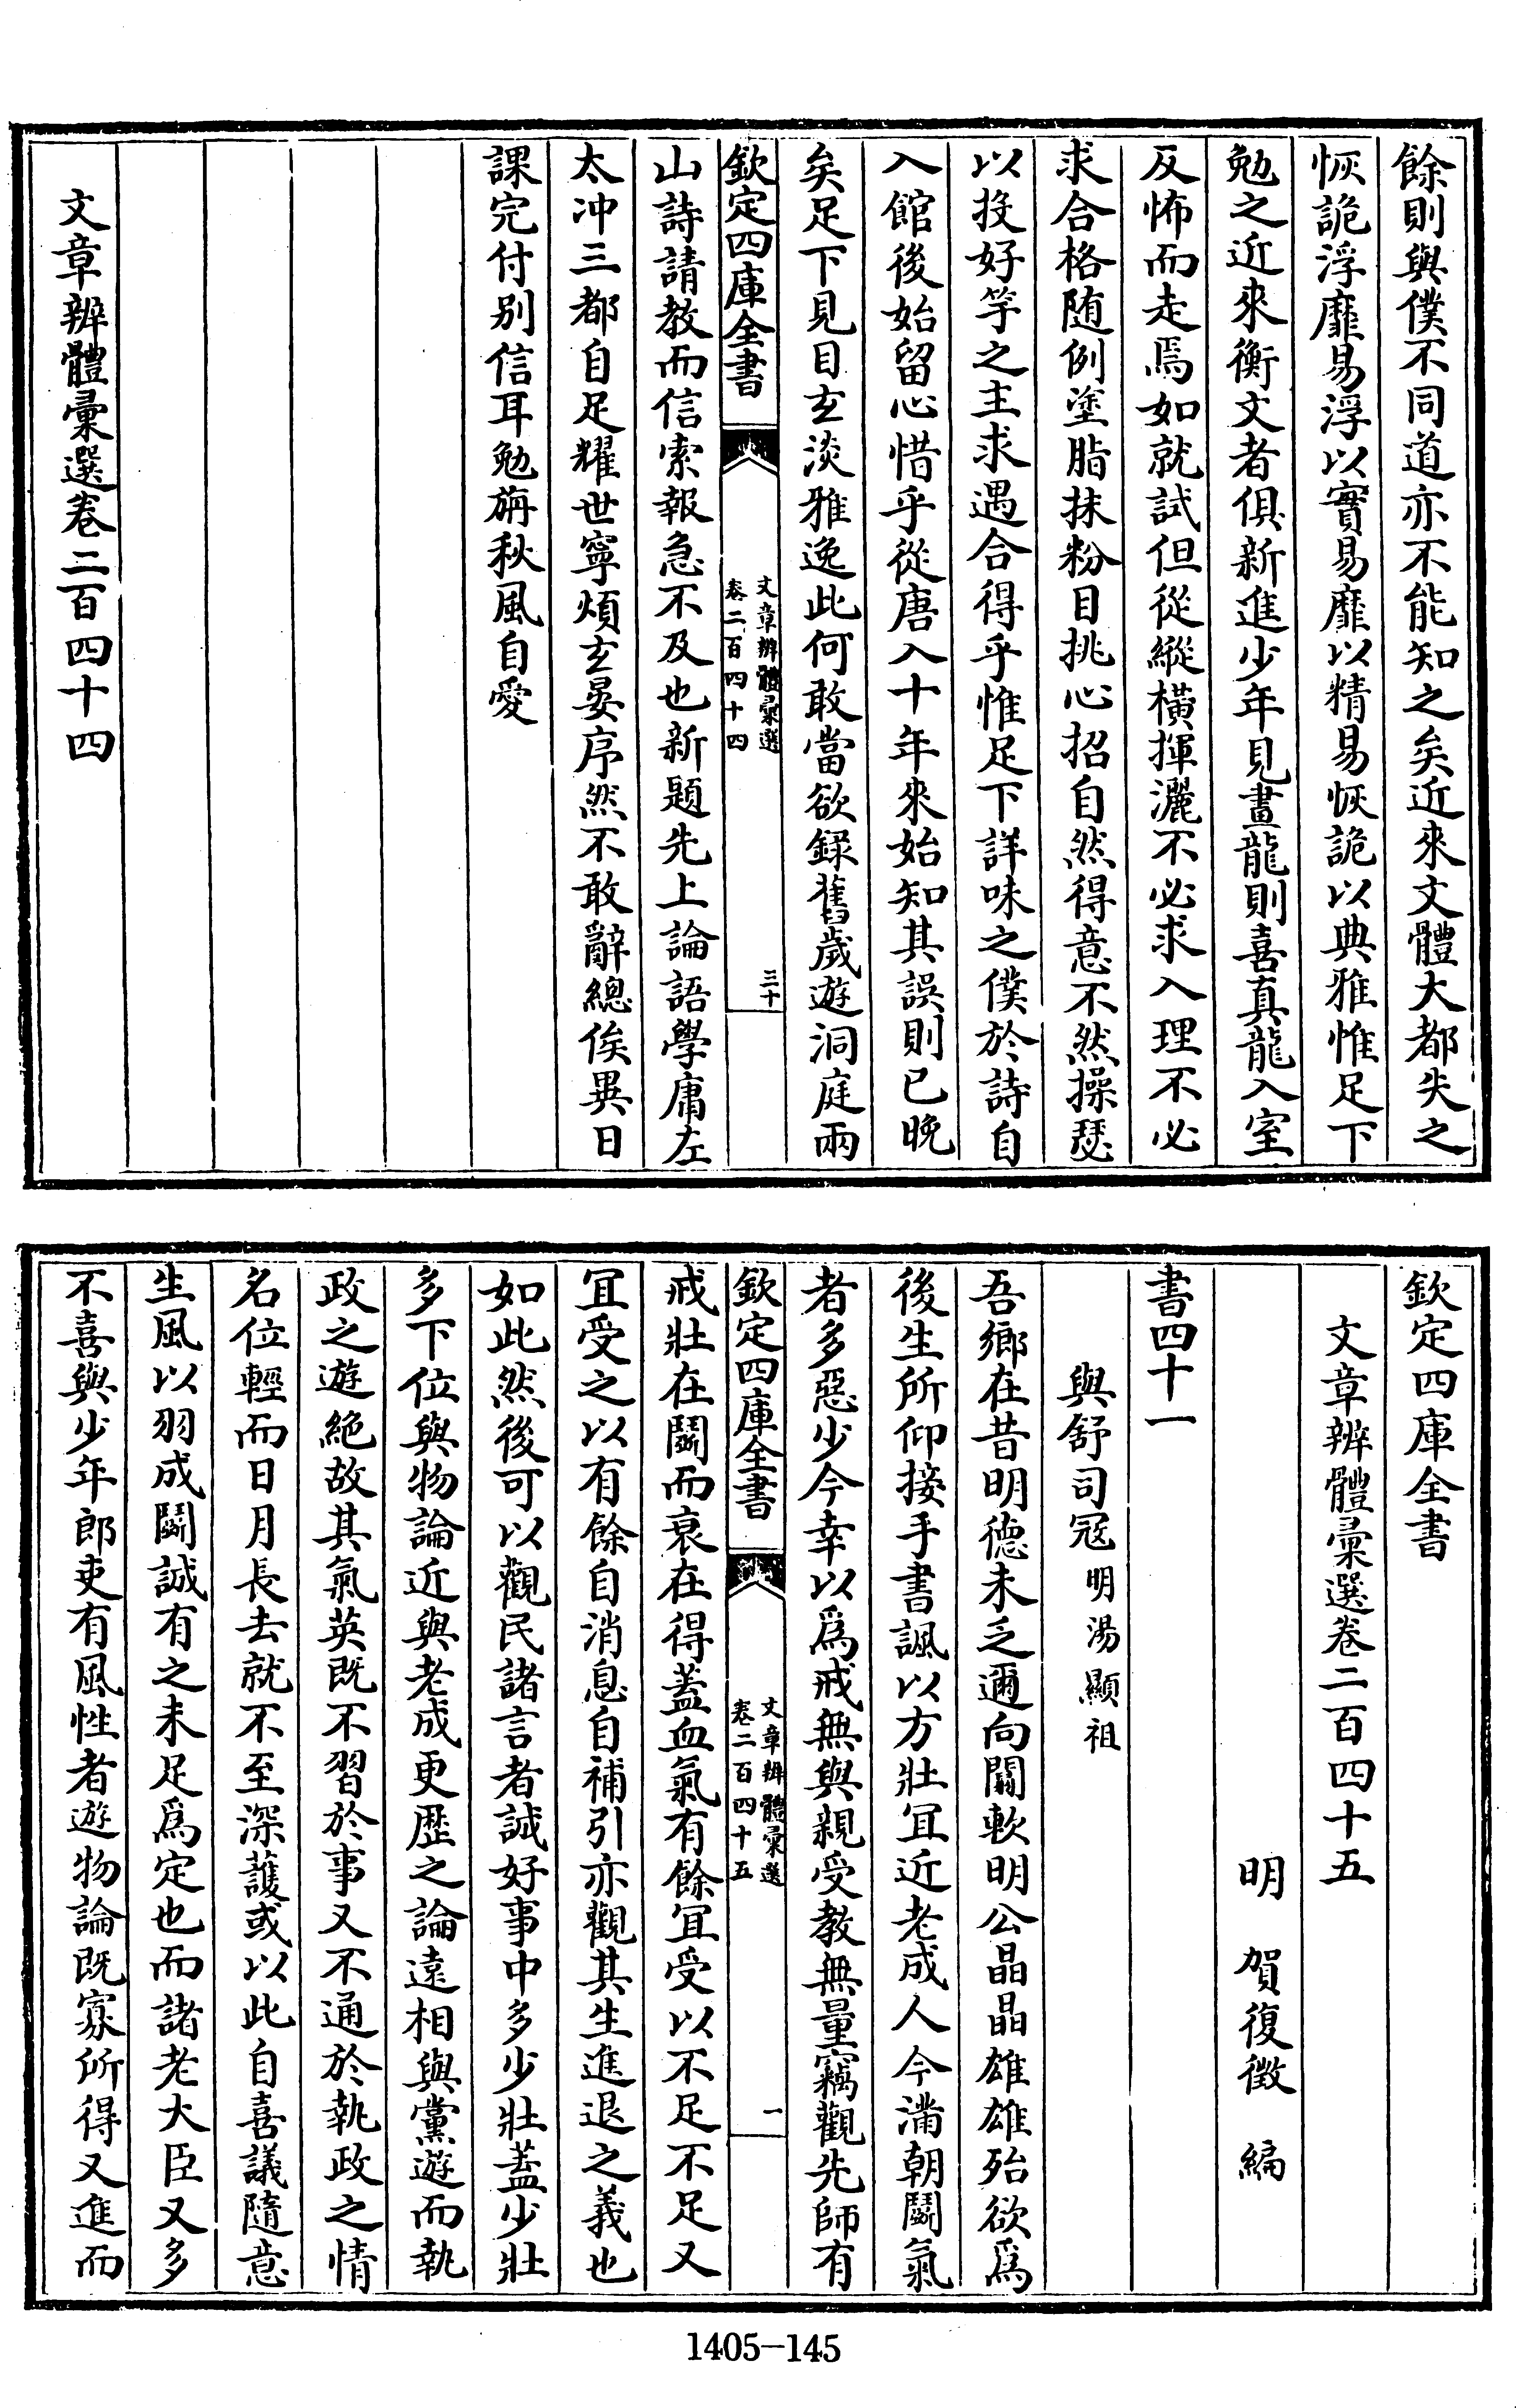 餘則與僕不同道亦不能知之矣近來文體大都失之
恢詭浮靡易浮以實易靡以精易恢詭以典雅惟足下
勉之近來衡文者俱新進少年見畫龍則喜真龍入室
反怖而走焉如就試但從縱橫揮灑不必求入理不必
求合格随例塗脂抹粉目挑心招自然得意不然操瑟
以投好竽之主求遇合得乎惟足下詳味之僕於詩自
入館後始留心惜乎從唐入十年來始知其誤則已晚
矣足下見目玄淡雅逸此何敢當欲錄舊歲遊洞庭兩
欽定四庫全書
文章辨體彙選
卷二百四十四
三十
山詩請教而信索報急不及也新題先上論語學庸左
太冲三都自足耀世寧煩玄晏序然不敢辭總俟異日
課完付别信耳勉旃秋風自愛
文章辨體彙選卷二百四十四
欽定四庫全書
文章辨體彙選卷二百四十五
明 賀復徵 編
書四十一
與舒司冦 明湯顯祖
吾鄉在昔明德未乏邇向闕軟明公晶晶雄雄殆欲爲
後生所仰接手書諷以方壯冝近老成人今滿朝鬬氣
者多惡少今幸以爲戒無與親受教無量竊觀先師有
欽定四庫全書
文章辨體彙選
卷二百四十五
一
戒壯在鬬而衰在得蓋血氣有餘冝受以不足不足又
冝受之以有餘自消息自補引亦觀其生進退之義也
如此然後可以觀民諸言者誠好事中多少壯蓋少壯
多下位與物論近與老成更歴之論遠相與黨遊而執
政之遊絶故其氣英既不習於事又不通於執政之情
名位輕而日月長去就不至深䕶或以此自喜議隨意
生風以羽成鬬誠有之未足爲定也而諸老大臣又多
不喜與少年郎吏有風性者遊物論既寡所得又進而
1405-145